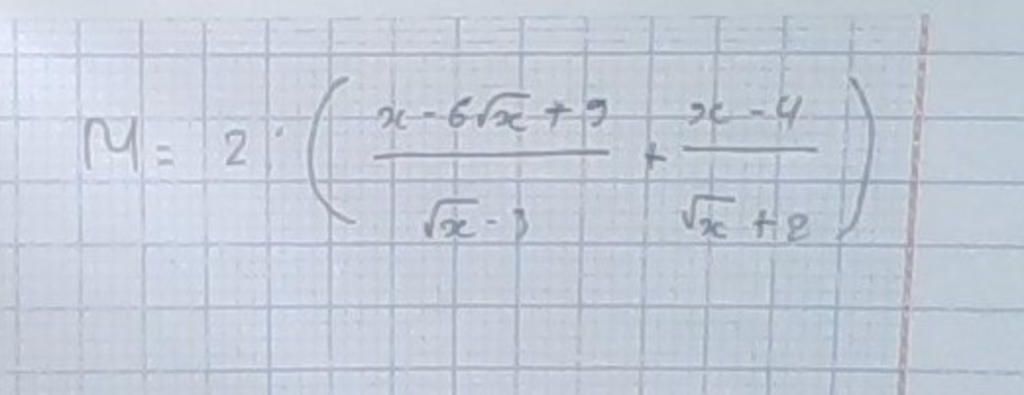 M = 2 · ( (x - 6√x + 9) / (√x - 3) + (x - 4) / (√x + 2) )